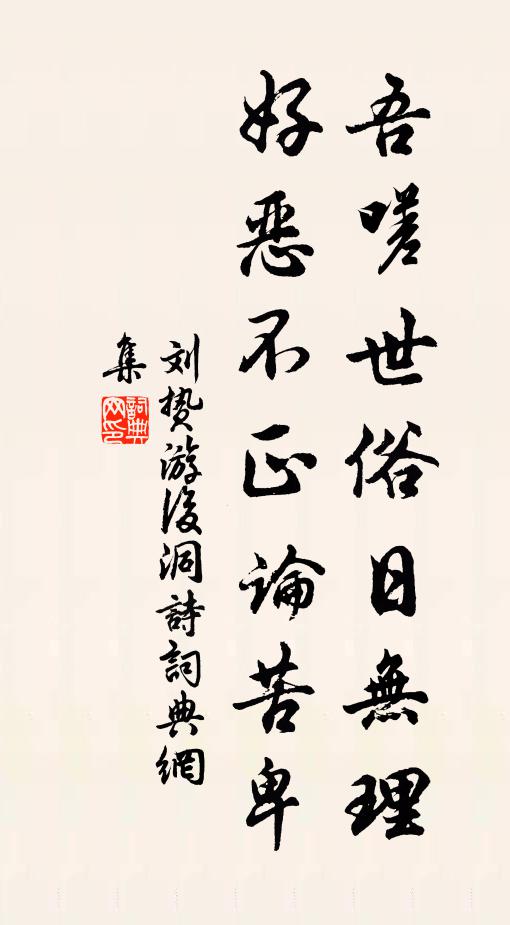 吾嗟世俗日無理
好惡不正論苦卑
刘挚游後洞詩詞典網
集
詞典网印